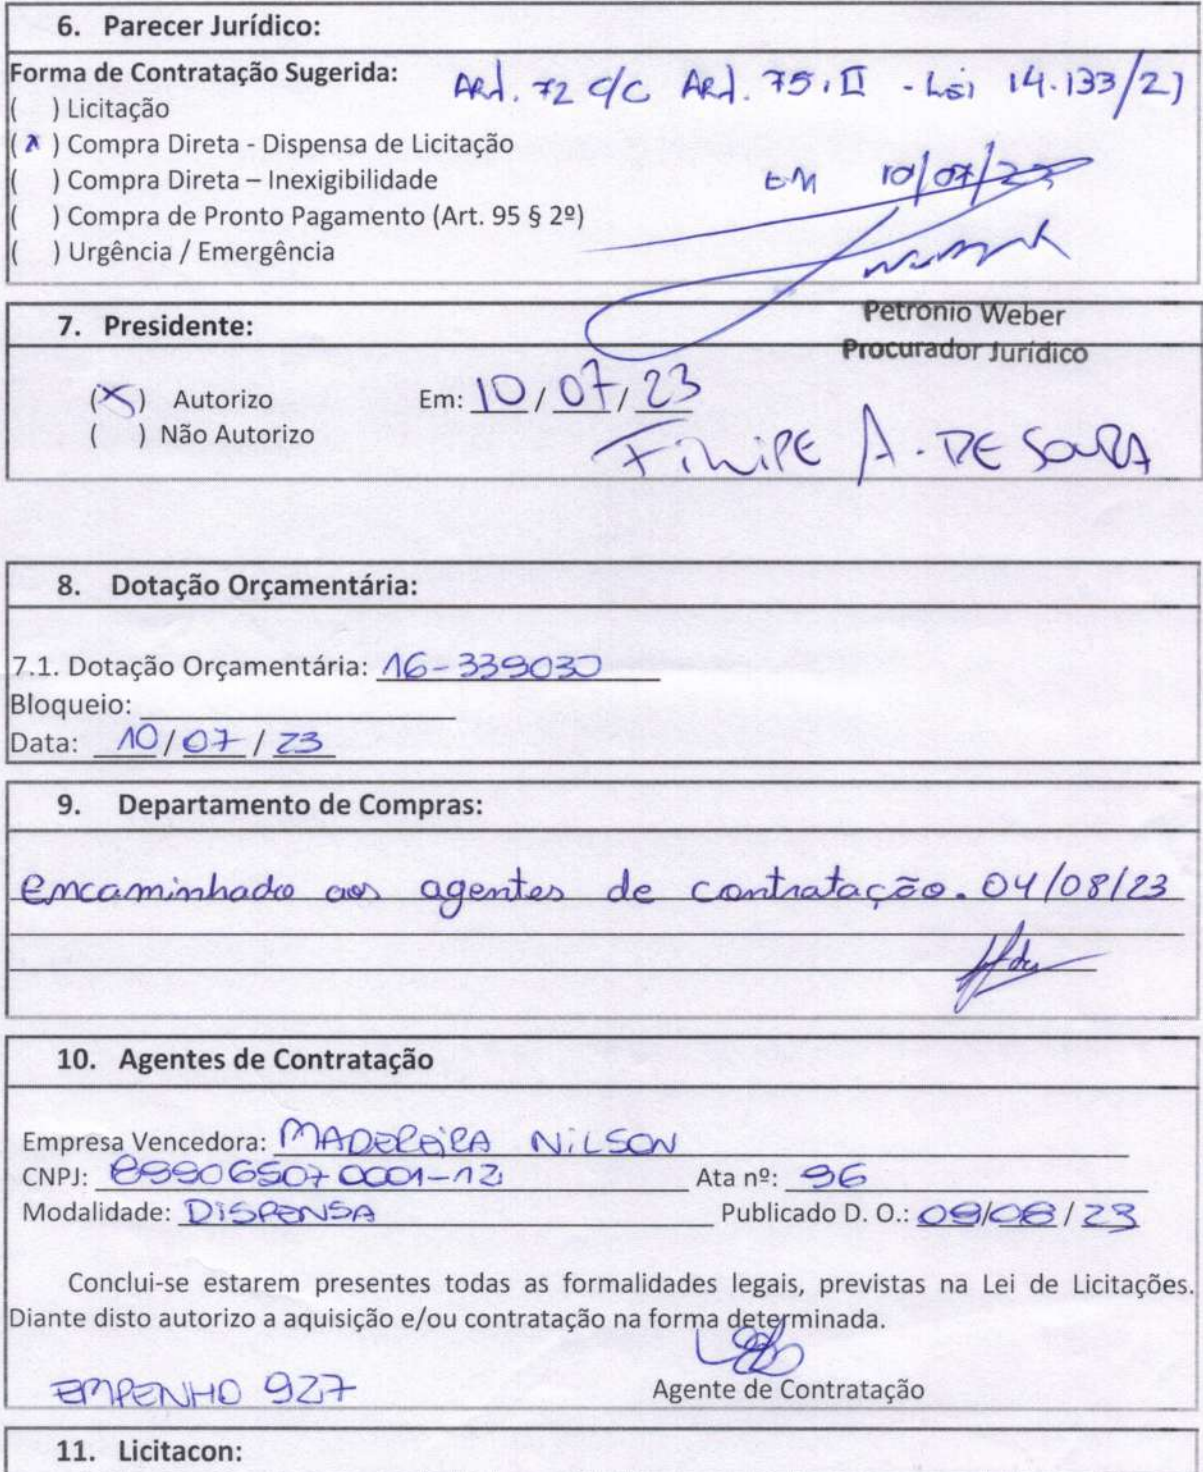 6. Parecer Jurídico:
Forma de Contratação Sugerida:
Art. 72 c/c Art. 75, II - Lei 14.133/21
( ) Licitação
( x ) Compra Direta - Dispensa de Licitação
( ) Compra Direta – Inexigibilidade
Em 10/07/23
( ) Compra de Pronto Pagamento (Art. 95 § 2º)
( ) Urgência / Emergência
Petronio Weber
Procurador Jurídico
7. Presidente:
(X) Autorizo Em: 10/07/23
( ) Não Autorizo
FiLiPE A. DE SOUZA
8. Dotação Orçamentária:
7.1. Dotação Orçamentária: 16-339030
Bloqueio:
Data: 10/07/23
9. Departamento de Compras:
encaminhado aos agentes de contratação. 04/08/23
10. Agentes de Contratação
Empresa Vencedora: MADEREiRA NiLSON
CNPJ: 89906507 0001-12 Ata nº: 96
Modalidade: DiSPENSA Publicado D. O.: 09/08/23
Conclui-se estarem presentes todas as formalidades legais, previstas na Lei de Licitações.
Diante disto autorizo a aquisição e/ou contratação na forma determinada.
EMPENHO 927
Agente de Contratação
11. Licitacon: